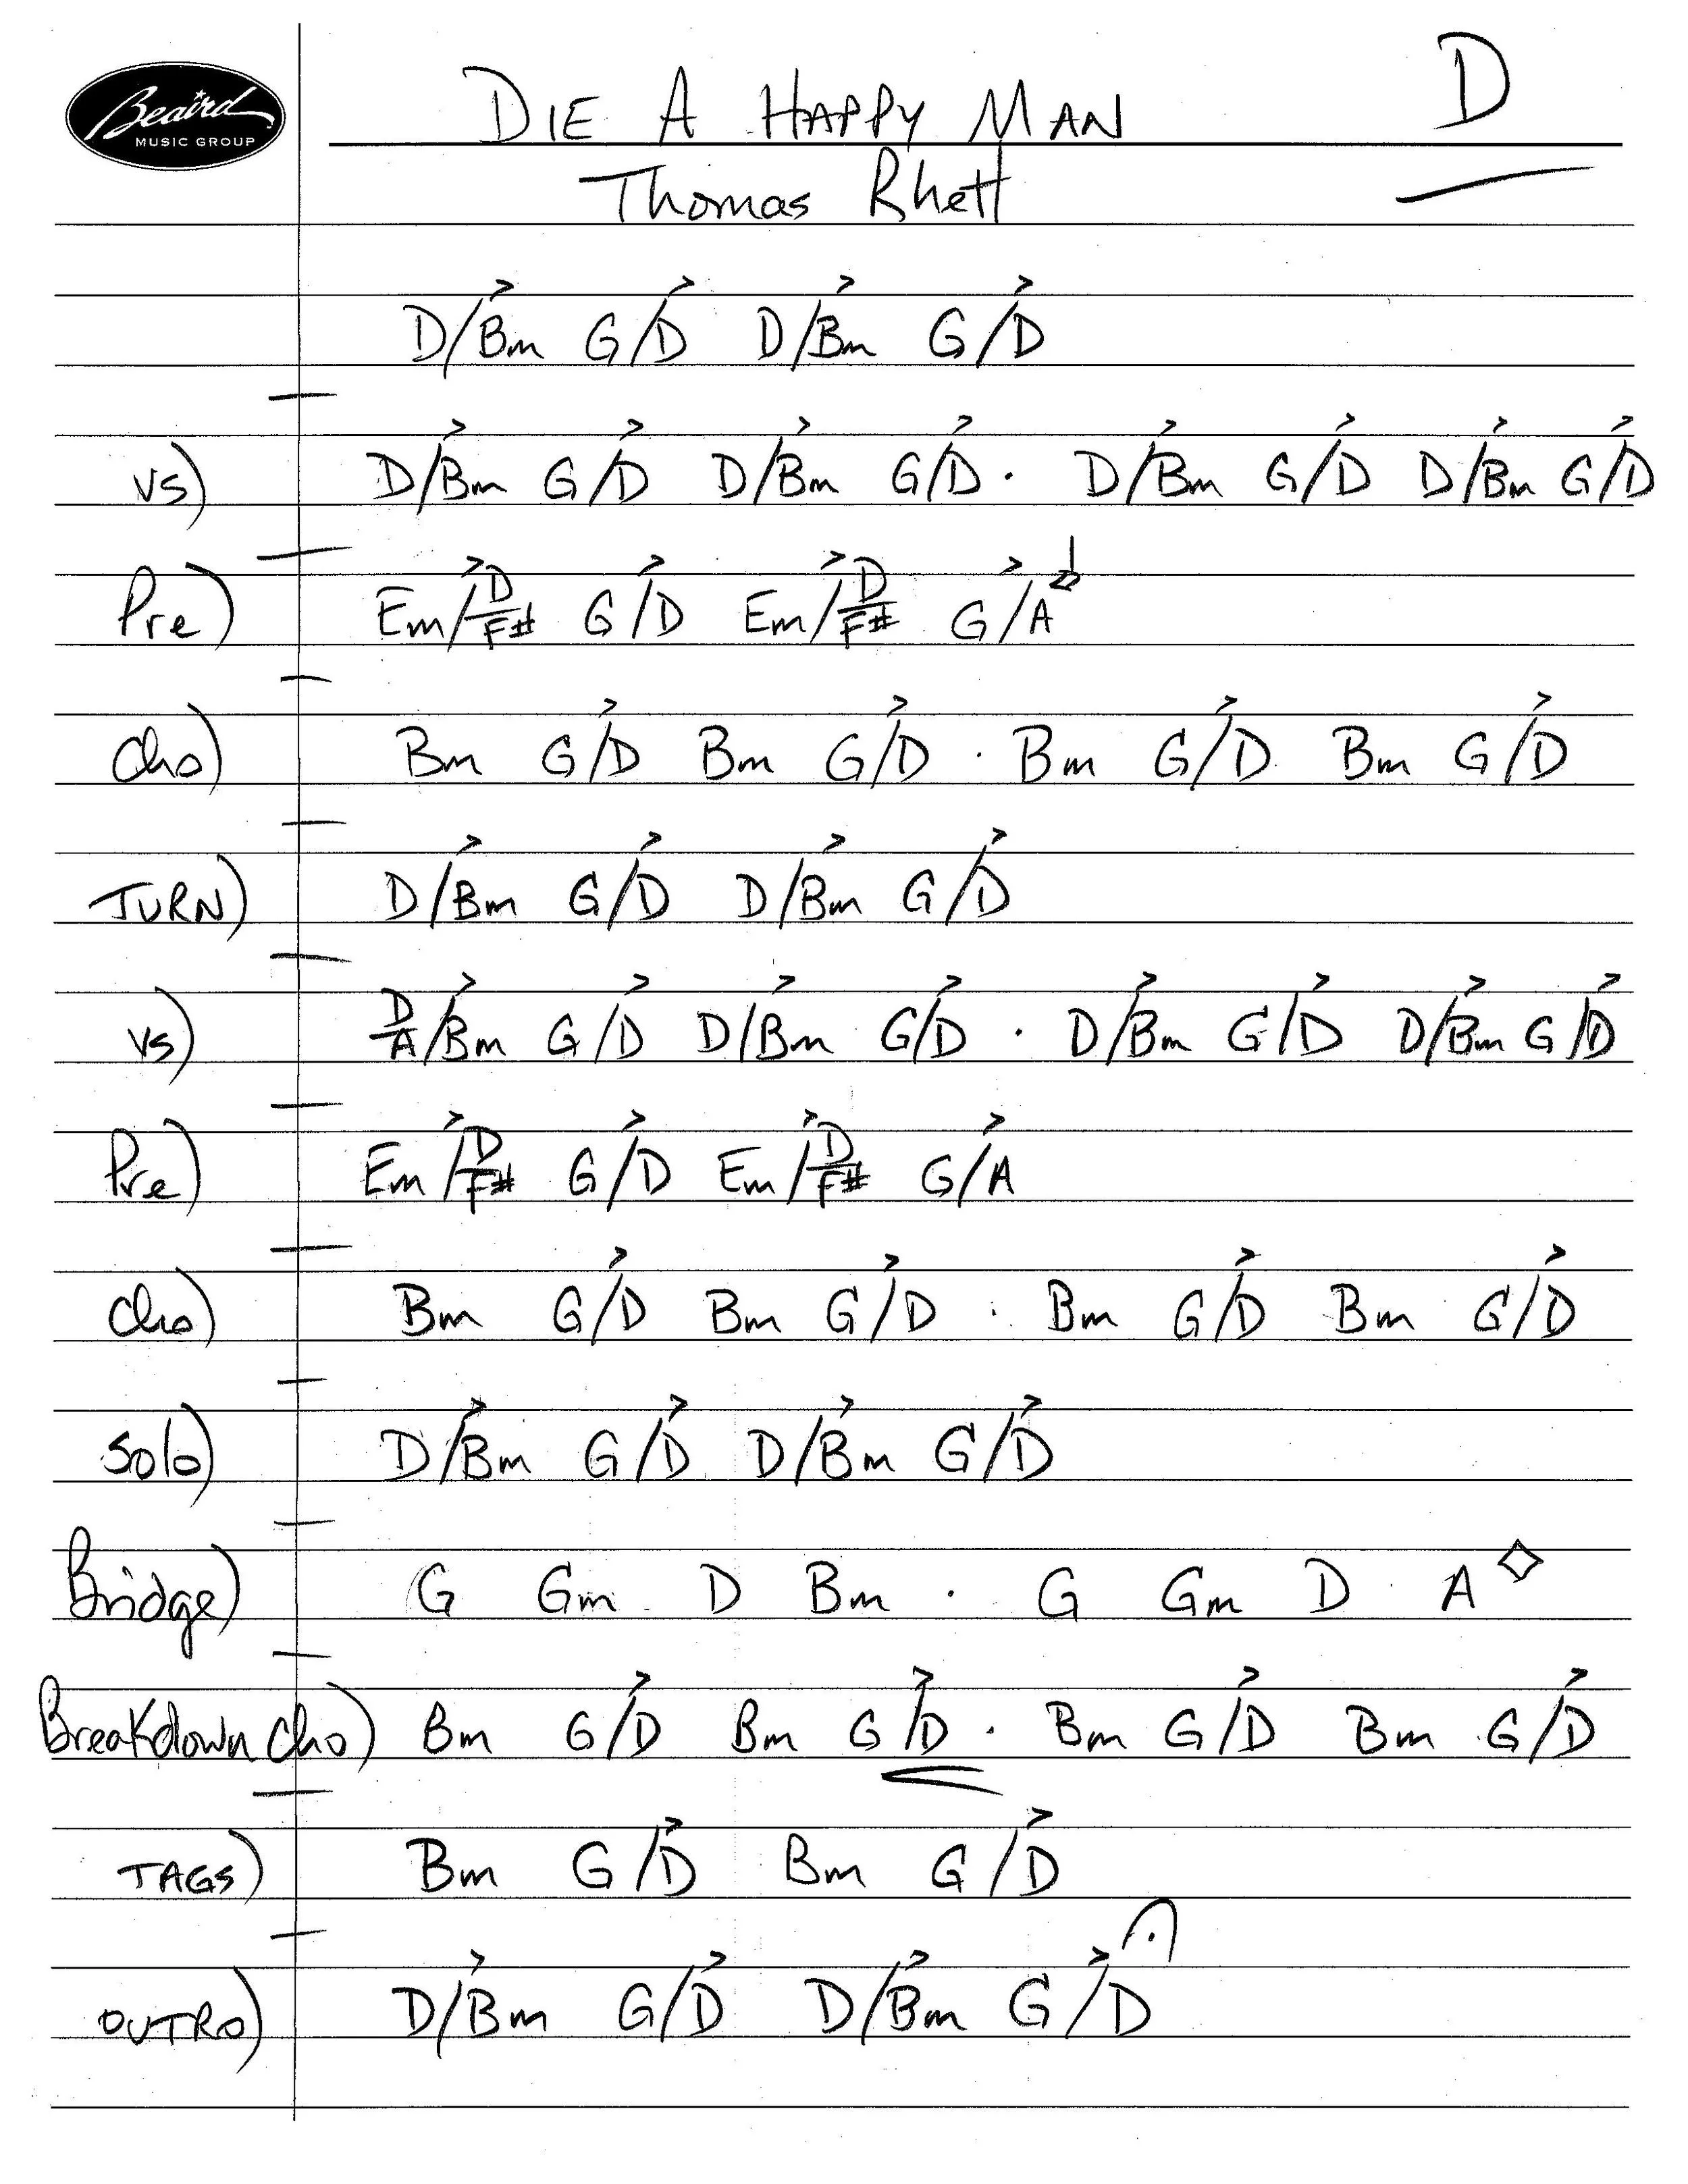 Beaird
MUSIC GROUP
DIE A HAPPY MAN D
Thomas Rhett
D/Bm G/D D/Bm G/D
vs) D/Bm G/D D/Bm G/D . D/Bm G/D D/Bm G/D
Pre) Em/D/F# G/D Em/D/F# G/A
Cho) Bm G/D Bm G/D . Bm G/D Bm G/D
TURN) D/Bm G/D D/Bm G/D
vs) D/A/Bm G/D D/Bm G/D . D/Bm G/D D/Bm G/D
Pre) Em/D/F# G/D Em/D/F# G/A
Cho) Bm G/D Bm G/D . Bm G/D Bm G/D
Solo) D/Bm G/D D/Bm G/D
Bridge) G Gm D Bm . G Gm D A ◇
Breakdown Cho) Bm G/D Bm G/D . Bm G/D Bm G/D
TAGS) Bm G/D Bm G/D
OUTRO) D/Bm G/D D/Bm G/D